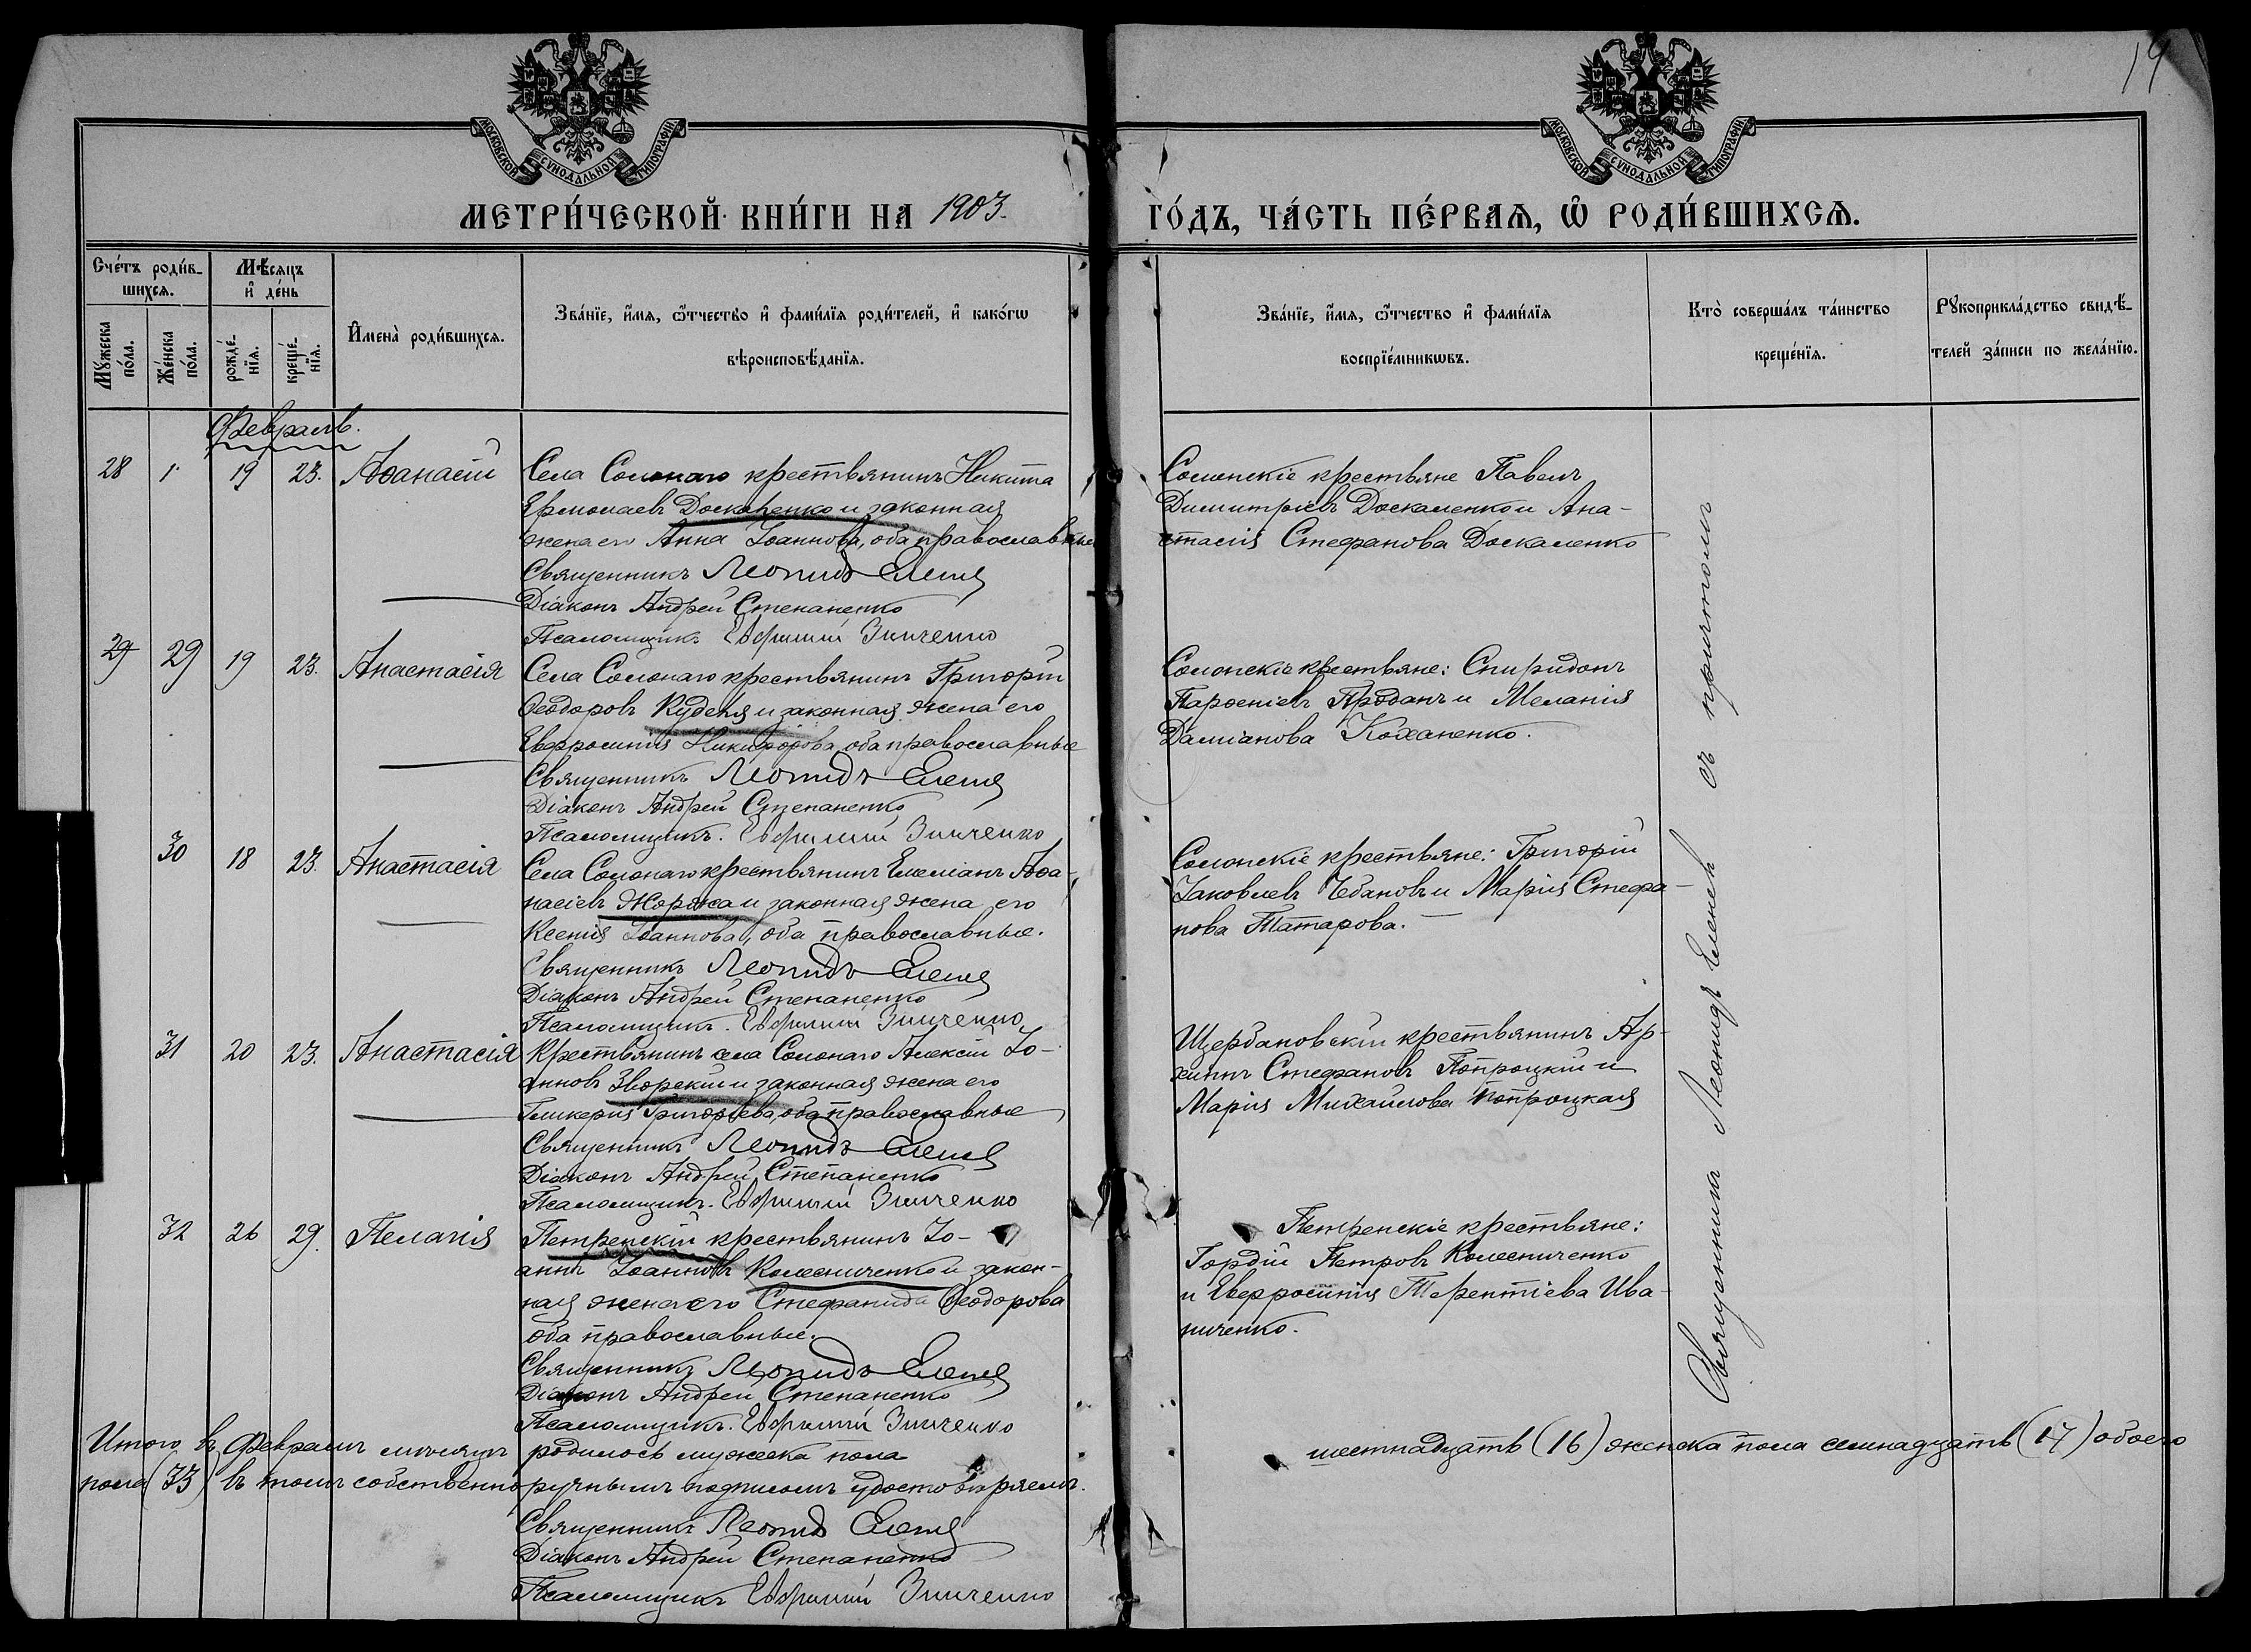 19
МОСКОВСКОЙ СѴНОДАЛЬНОЙ ТИПОГРАФІИ
МОСКОВСКОЙ СѴНОДАЛЬНОЙ ТИПОГРАФІИ
МЕТРИ́ЧЕСКОЙ КНИ́ГИ НА 1903.
ГО́ДЪ, ЧА́СТЬ ПЕ́РВАѦ, Ѽ РОДИ́ВШИХСѦ.
Сче́тъ роди́в-
шихсѧ.
Мѣ́сѧцъ
и҆ де́нь
Мꙋ́жеска
по́ла.
Же́нска
по́ла.
рожде́-
нїѧ.
креще́-
нїѧ.
И҆мена̀ роди́вшихсѧ.
Зва́нїе, и҆́мѧ, ѻ҆́тчество и҆ фами́лїѧ роди́телей, и҆ како́гѡ
вѣроисповѣ́данїѧ.
Зва́нїе, и҆́мѧ, ѻ҆́тчество и҆ фами́лїѧ
воспрїе́мникѡвъ.
Кто̀ соверша́лъ та́инство
креще́нїѧ.
Рꙋкоприкла́дство свидѣ́-
телей за́писи по жела́нїю.
Февраль.
28 1. 19 23. Аѳанасій
Села Солонаго крестьянинъ Никита
Ермолаевъ Доскаленко и законная
жена его Анна Іоаннова, оба православные
Священникъ Леонидъ
Діаконъ Андрей Степаненко
Псаломщикъ Евфимій Зинченко
Солонскіе крестьяне Павелъ
Димитріевъ Доскаленко и Ана-
стасія Стефанова Доскаленко
29 29 19 23. Анастасія
Села Солонаго крестьянинъ Григорій
Ѳеодоровъ Куделя и законная жена его
Евфросинія Никифорова, оба православные
Священникъ Леонидъ
Діаконъ Андрей Степаненко
Псаломщикъ. Евфимій Зинченко
Солонскіе крестьяне: Спиридонъ
Парѳеніевъ Проданъ и Меланія
Даміанова Коханенко.
30 18 23. Анастасія
Села Солонаго крестьянинъ Емеліанъ Аѳа-
насіевъ Жоржа и законная жена его
Ксенія Іоаннова, оба православные.
Священникъ Леонидъ
Діаконъ Андрей Степаненко
Псаломщикъ. Евфимій Зинченко
Солонскіе крестьяне: Григорій
Іаковлевъ Чбановъ и Марія Стефа-
нова Татарова.
31 20 23. Анастасія
Крестьянинъ села Солонаго Алексій Іо-
анновъ Зворскій и законная жена его
Гликерія Григорьева, оба православные
Священникъ Леонидъ
Діаконъ Андрей Степаненко
Псаломщикъ. Евфимій Зинченко
Щербановскій крестьянинъ Ар-
хиппъ Стефановъ Попроцкій и
Марія Михайлова Попроцкая
32 26 29. Пелагія
Петренскій крестьянинъ Іо-
аннъ Іоанновъ Колесниченко и закон-
ная жена его Стефанида Ѳеодорова
оба православные.
Священникъ Леонидъ
Діаконъ Андрей Степаненко
Псаломщикъ. Евфимій Зинченко
Петренскіе крестьяне:
Гордій Петровъ Колесниченко
и Евфросинія Терентіева Ива-
ниченко.
Священникъ Леонидъ съ причтомъ
Итого въ Февралѣ мѣсяцѣ родилось мужеска пола шестнадцать (16) женска пола семнадцать (17) обоего
пола (33) въ томъ собственноручнымъ подписомъ удостовѣряемъ.
Священникъ Леонидъ
Діаконъ Андрей Степаненко
Псаломщикъ Евфимій Зинченко